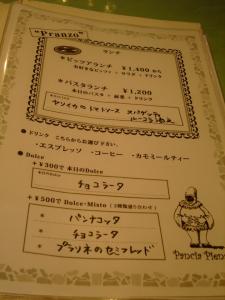 "Pranzo"
ランチ
＊ピッツァランチ ¥1,400 から
お好きなピッツァ・サラダ・ドリンク
＊パスタランチ ¥1,200
本日のパスタ・前菜・ドリンク
ヤリイカのトマトソース スパゲッティ
● ドリンク こちらからお選び下さい。
・エスプレッソ ・コーヒー ・カモミールティー
● Dolce
+¥300で 本日のDolce
本日のDolce
チョコラータ
+¥500で Dolce-Misto (3種類盛り合わせ)
＊ パンナコッタ
＊ チョコラータ
＊ プラリネのセミフレッド
Pancia Piena